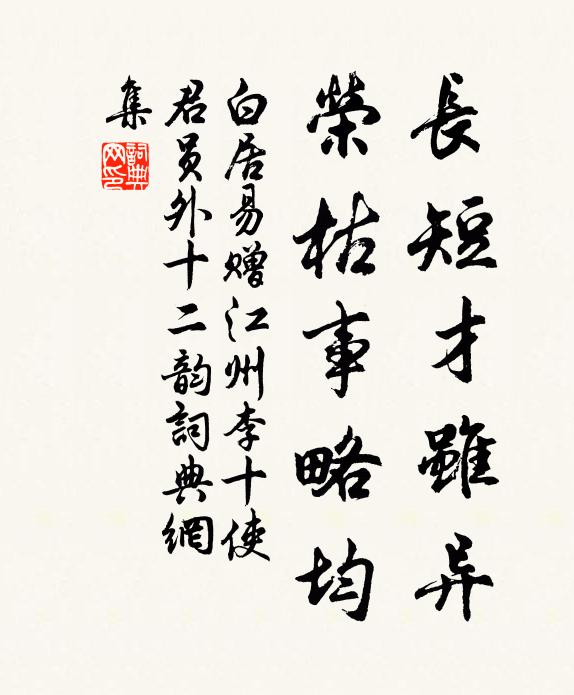 長短才雖异
榮枯事略均
白居易赠江州李十使
君員外十二韵詞典網
集
詞典
网印